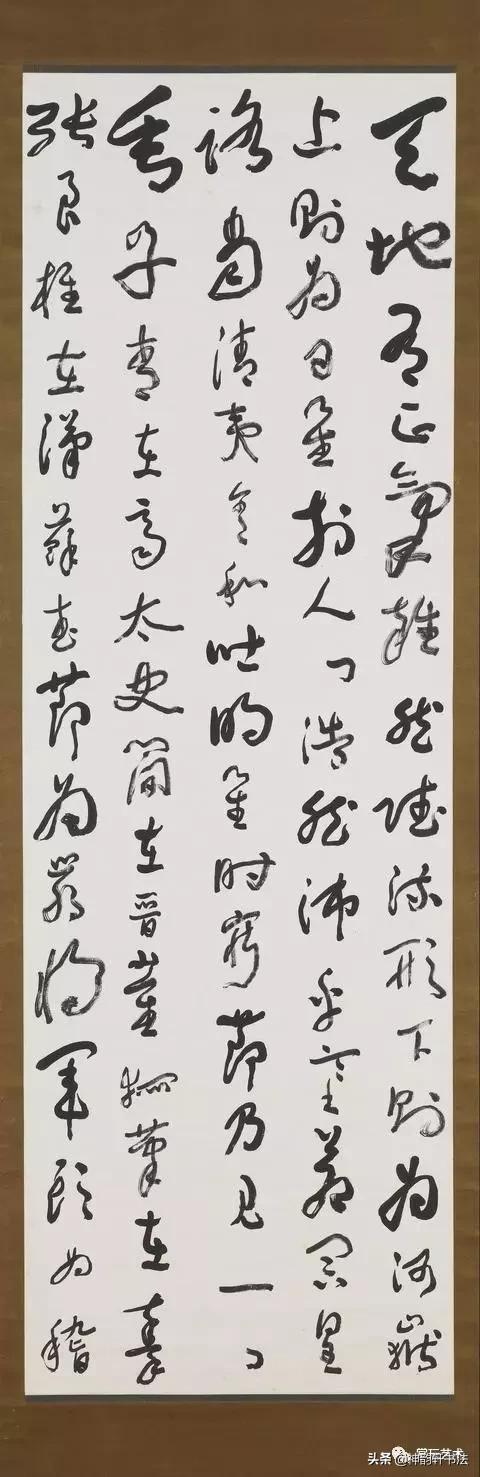 天地有正氣雜然賦流形下則為河嶽
上則為日星於人曰浩然沛乎塞蒼冥皇
路當清夷含和吐明庭時窮節乃見一一
垂丹青在齊太史簡在晉董狐筆在秦
張良椎在漢蘇武節為嚴將軍頭為嵇
头条 @神韵轩书法